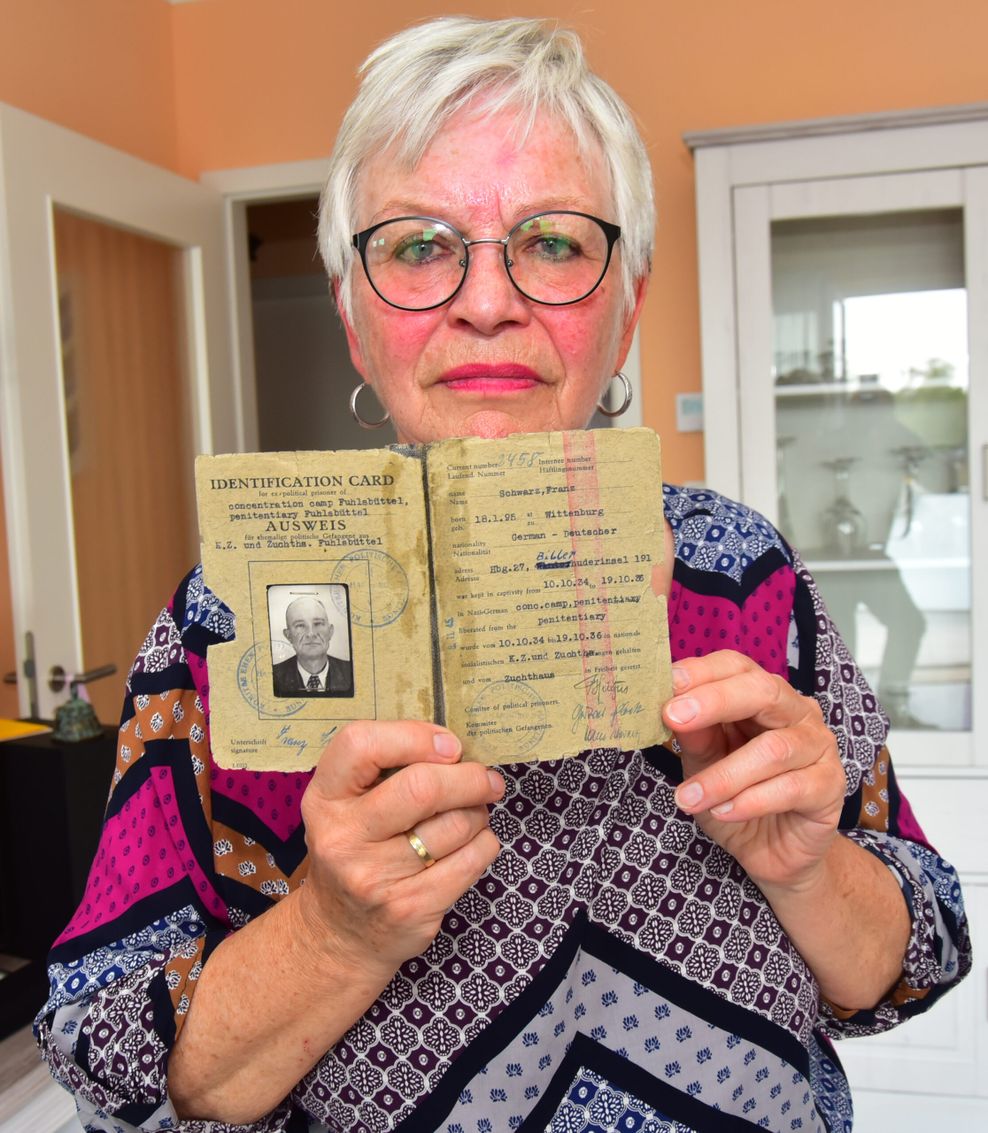 IDENTIFICATION CARD
for ex-political prisoner of
concentration camp Fuhlsbüttel,
penitentiary Fuhlsbüttel
AUSWEIS
für ehemalige politische Gefangene aus
K.Z. und Zuchths. Fuhlsbüttel
Unterschrift
signature
Current number 2458 Internee number
Laufend. Nummer Häftlingsnummer
name Schwarz,Franz
Name
born 18.1.95 at Wittenburg
geb. zu
nationality German - Deutscher
Nationalität
Biller
adress Hbg.27, huderinsel 191
Adresse
was kept in captivity from 10.10.34 to 19.10.36
in Nazi-German conc.camp,penitentiary
liberated from the penitentiary
wurde vom 10.10.34 bis 19.10.36 in nationals
sozialistischen K.Z.und Zuchths. gehalten
und vom Zuchthaus in Freiheit gesetzt
Comitee of political prisoners
Komitee
der politischen Gefangenen